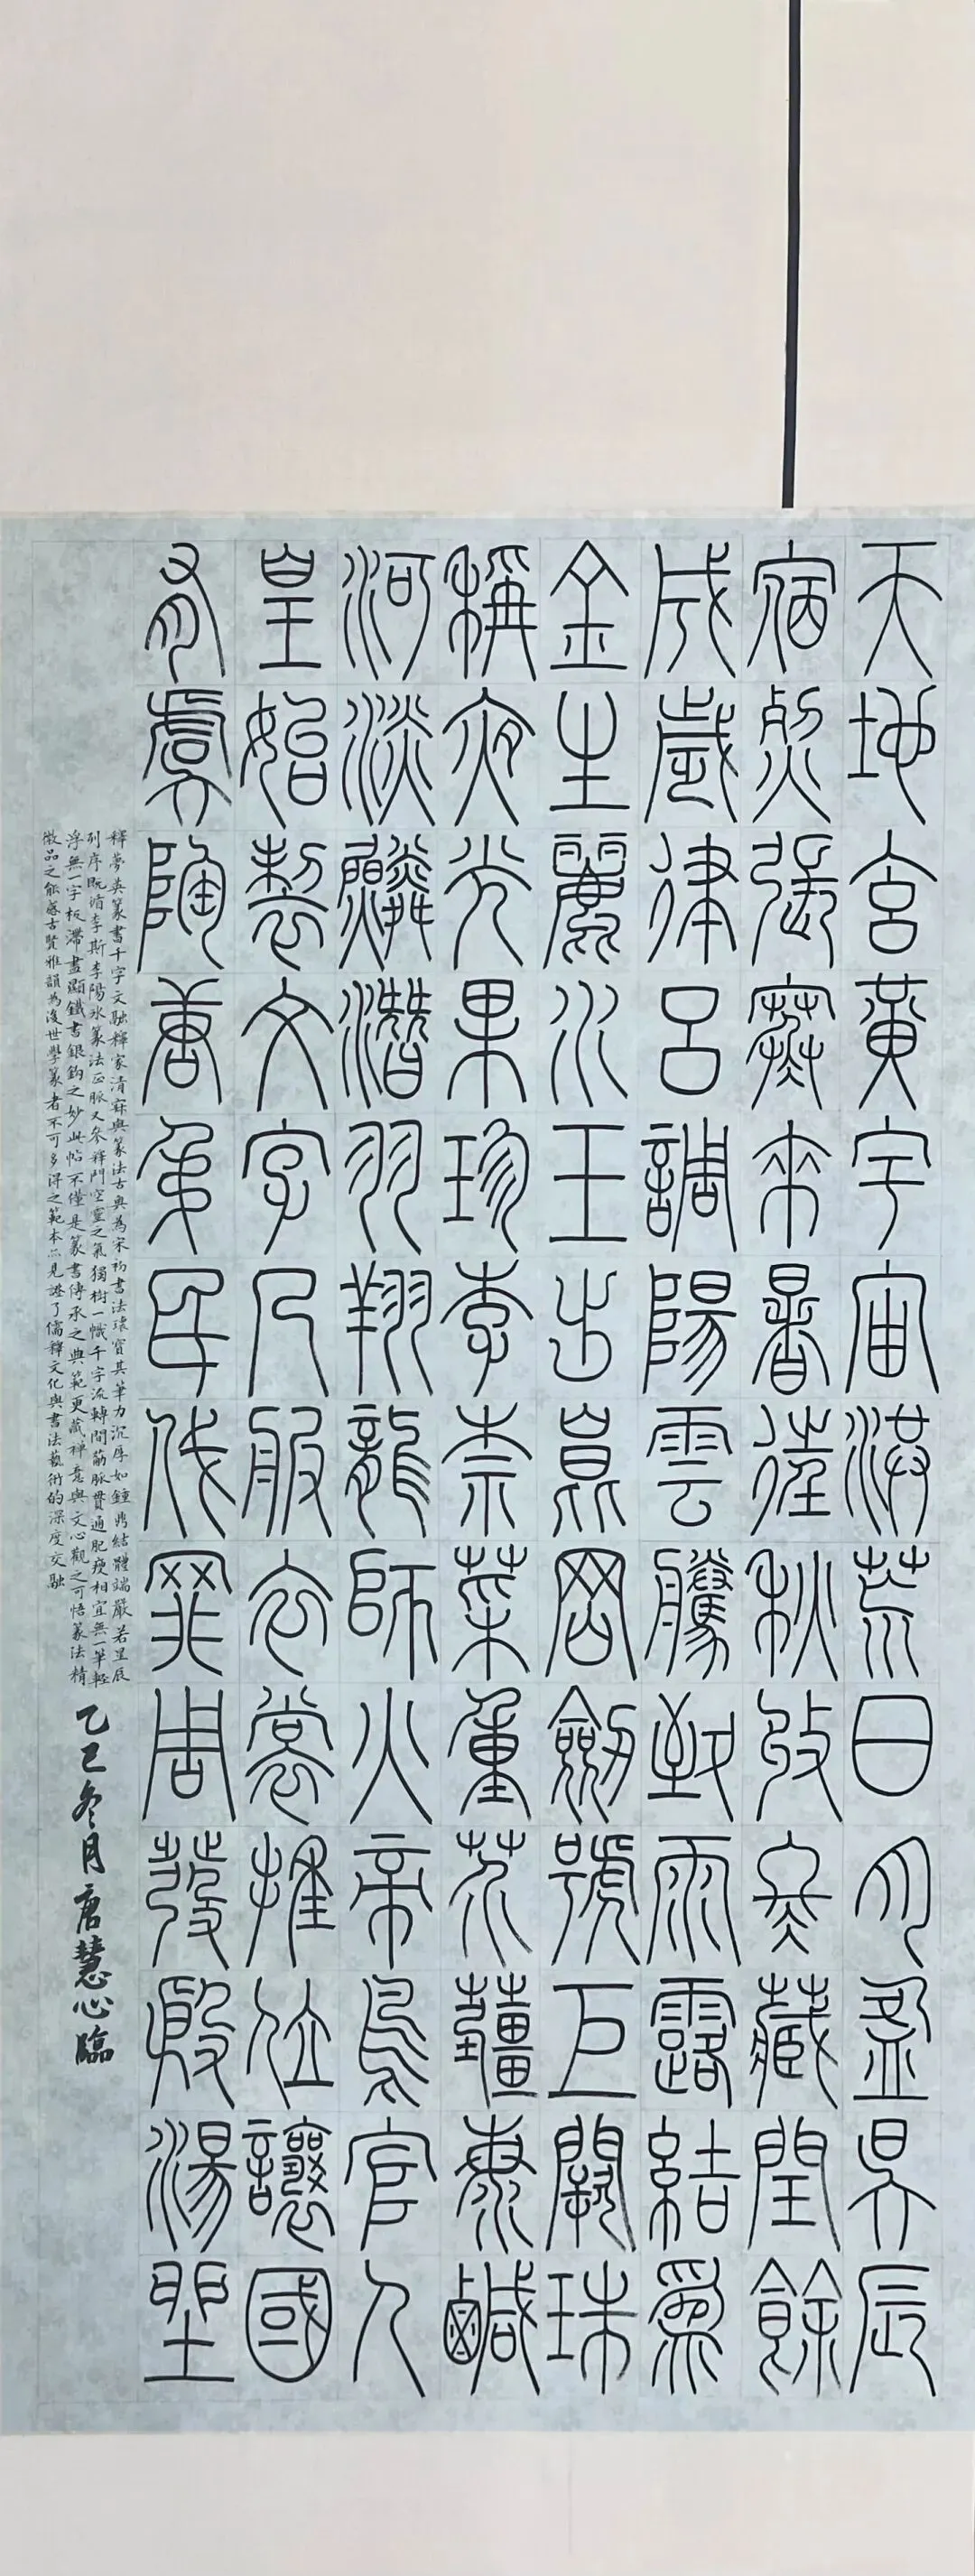 天地玄黃宇宙洪荒日月盈昃辰
宿列張寒來暑往秋收冬藏閏餘
成歲律呂調陽雲騰致雨露結爲
金生麗水玉出崑岡劍號巨闕珠
稱夜光果珍李柰菜重芥薑海鹹
河淡鱗潛羽翔龍師火帝鳥官人
皇始製文字乃服衣裳推位讓國
有虞陶唐弔民伐罪周發殷湯坐
釋夢英篆書千字文融釋家清寂與篆法古典為宋初書法瑰寶其筆力沉厚如鐘鼎結體端嚴若星辰
列序既循李斯李陽冰篆法正脈又參禪門空靈之氣獨樹一幟千字流轉間筋脈貫通肥瘦相宜無一筆輕
浮無一字板滯盡顯鐵書銀鉤之妙此帖不僅是篆書傳承之典範更藏禪意與文心觀之可悟篆法精
微品之能感古賢雅韻為後世學篆者不可多得之範本亦見證了儒釋文化與書法藝術的深度交融
乙巳冬月唐慧心臨